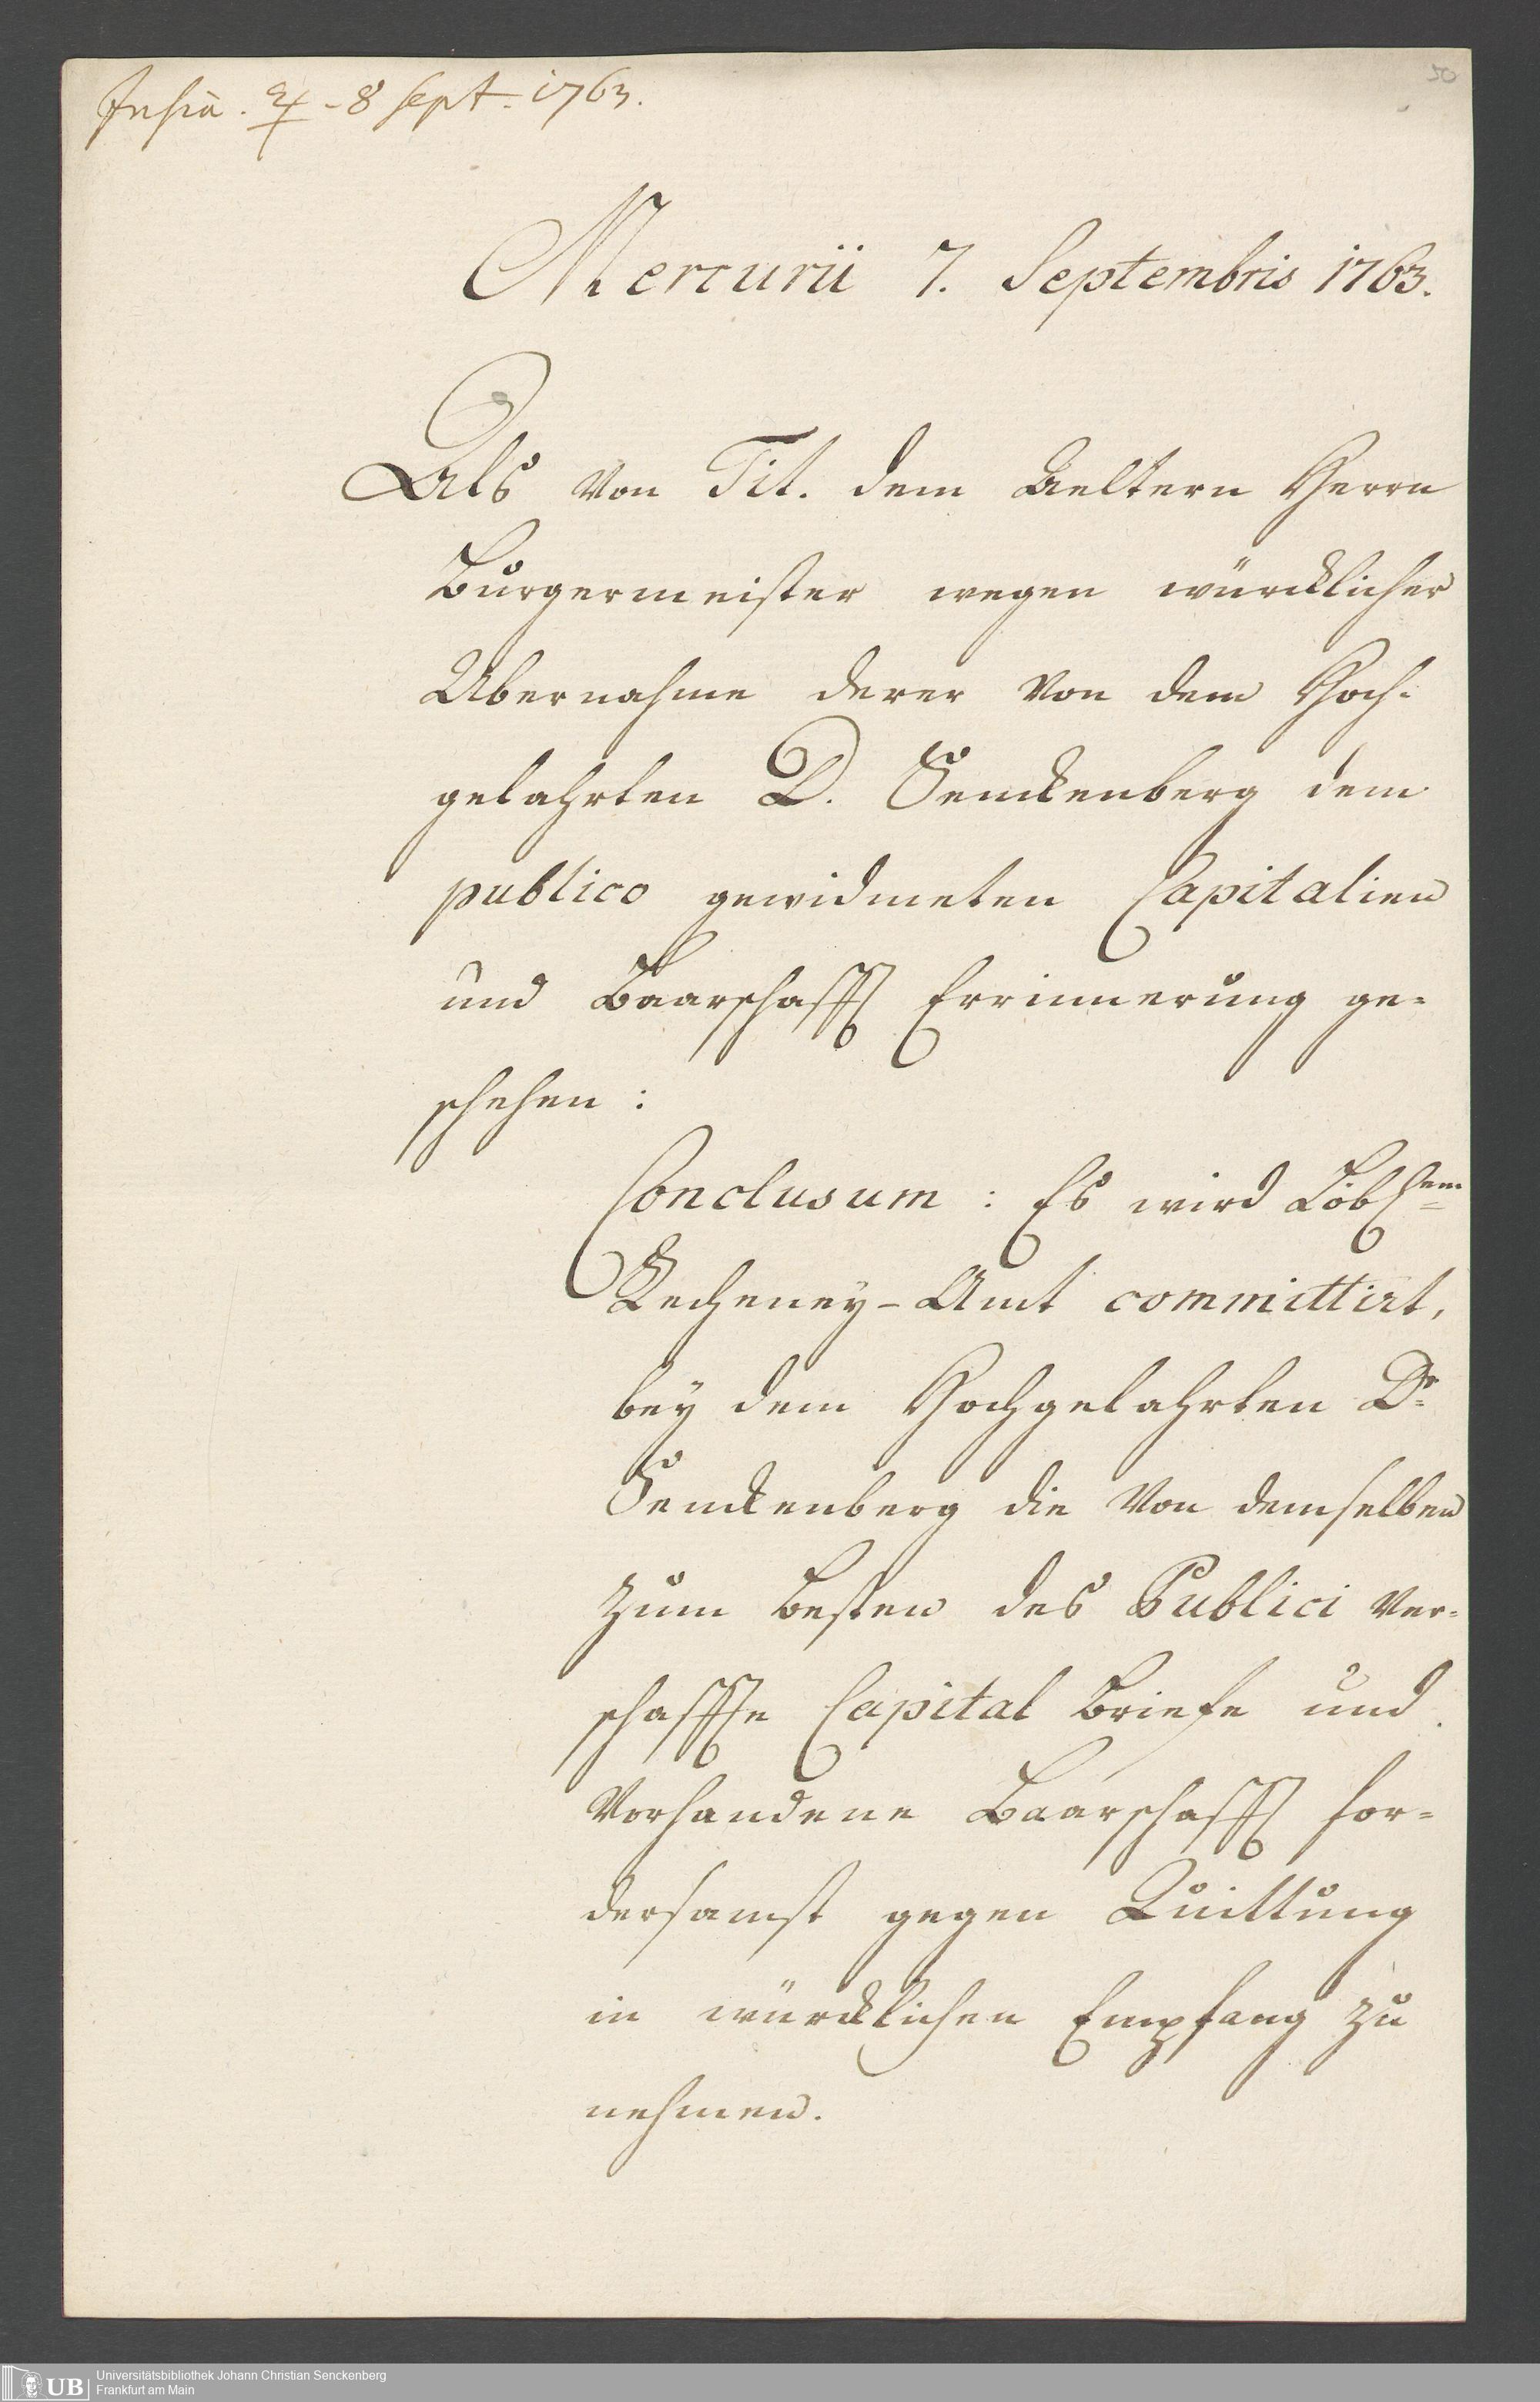 50
Insin. ♃ - 8 Sept. 1763.
Mercurii 7. Septembris 1763.
Als von Tit. dem Aeltern Herrn
Burgermeister wegen würcklicher
Ubernahme derer von dem Hoch-
gelahrten D. Senckenberg dem
publico gewidmeten Capitalien
und Baarschafft Errinnerung ge-
schehen:
Conclusum: Es wird Löbl.em
Recheney-Amt committirt,
bey dem Hochgelahrten Dr
Senckenberg die von demselben
zum Besten des Publici ver-
schaffte Capital Briefe und
vorhandene Baarschafft for-
dersamst gegen Quittung
in würcklichen Empfang zu
nehmen.
UB Universitätsbibliothek Johann Christian Senckenberg
Frankfurt am Main